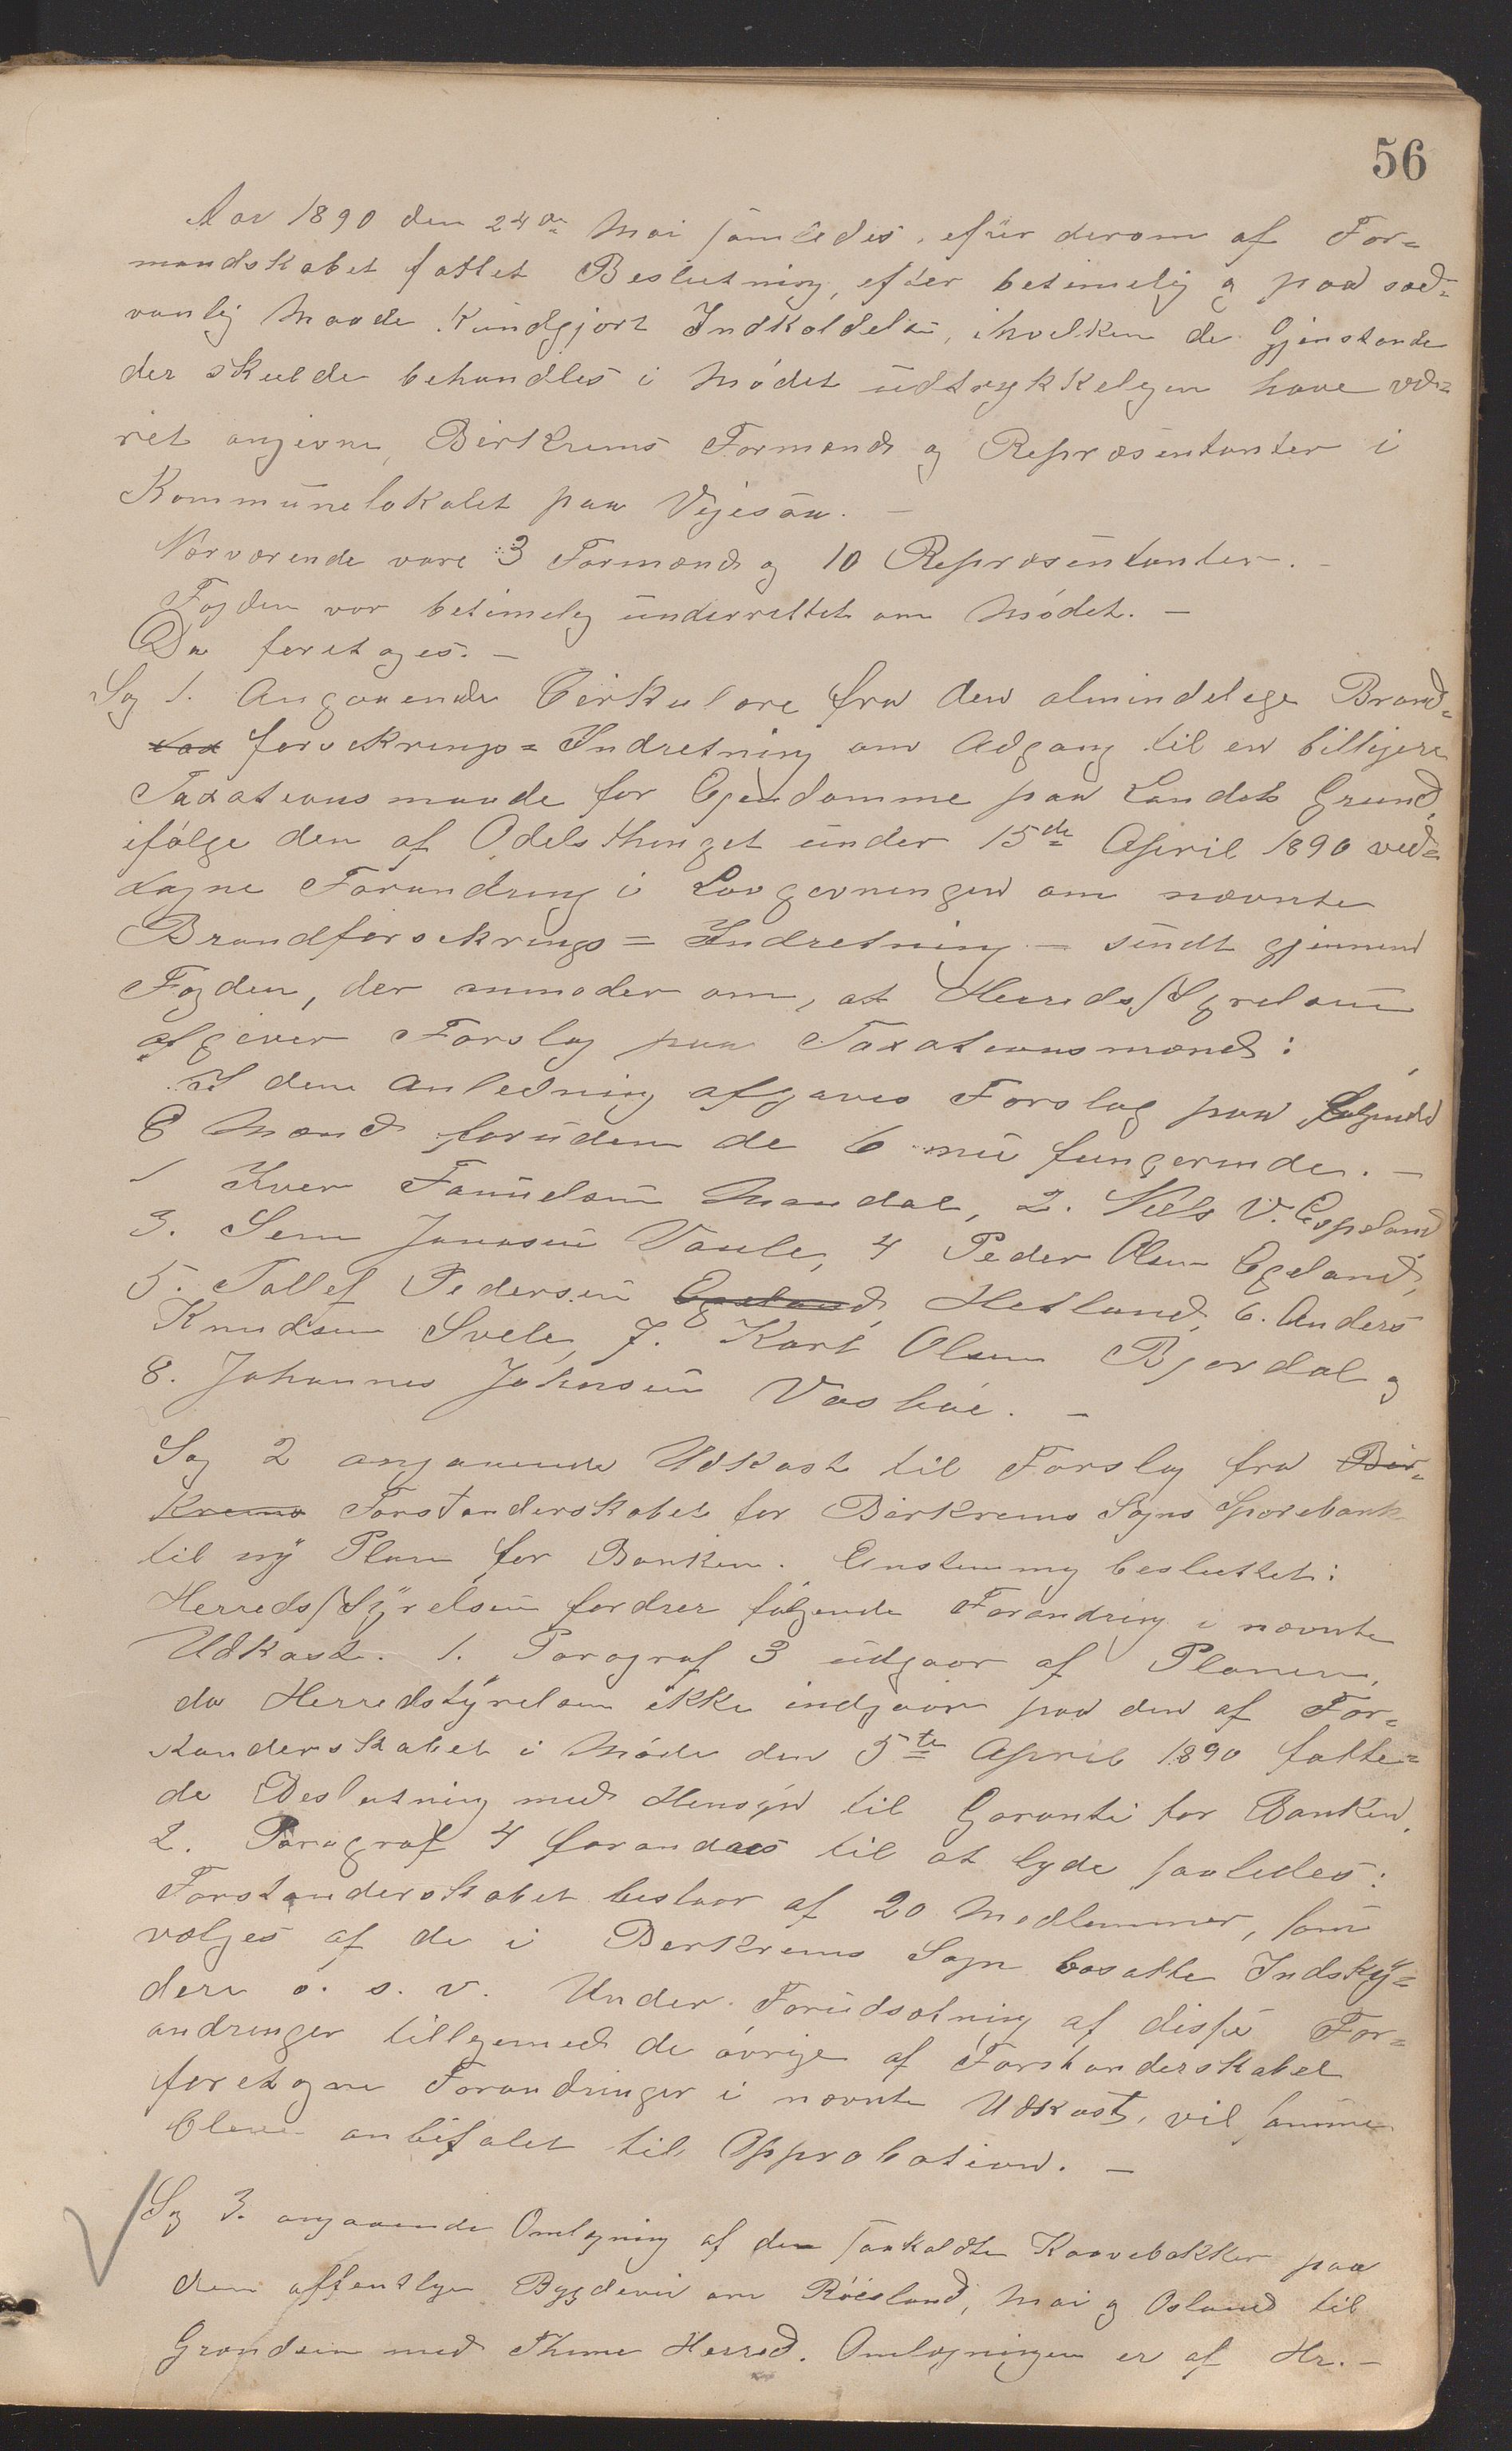 56
Aar 1890 den 24de Mai samledes, efter derom af For=
mandskabet fattet Beslutning, efter betimelig og paa sæd=
vanlig Maade Kundgjort Indkaldelse, ihvilken de Gjenstande
der skulde behandles i Mødet udtrykkeligen have væ=
ret angivne, Birkrems Formænd og Repræsentanter i
Kommunelokalet paa Vigesaa. –
Nærværende vare 3 Formænd og 10 Repræsentanter. –
Fogden var betimelig underrettet om Mødet. –
Da foretoges. –
Sag 1. Angaaende Cirkulære fra den almindelige Brand=
forsikrings=Indretning om Adgang til en billigere
Taxationsmaade for Eiendomme paa Landets Grund,
ifølge den af Odelsthinget under 15de April 1890 ved=
tagne Forandring i Lovgivningen om nævnte
Brandforsikrings=Indretning – sendt gjennem
Fogden, der anmoder om, at Herredsstyrelsen
afgiver Forslag paa Taxationsmænd:
I den Anledning afgaves Forslag paa følgende
8 Mænd foruden de 6 nu fungerende. –
1 Iver Samuelsen Mandal, 2. Niels V. Espeland
3. Sem Jonasen Vaule, 4 Peder Olsen Egeland,
5. Tollef Pedersen Egeland, Hetland, 6. Anders
Knudsen Svele, 7. Karl Olsen Bjordal og
8. Johannes Johnsen Vasbøe. –
Sag 2 angaaende Udkast til Forslag fra Bir=
krems Forstanderskabet for Birkrems Sogns Sparebank
til ny Plan for Banken. Enstemmig besluttet:
Herredsstyrelsen fordrer følgende Forandring i nævnte
Udkast. 1. Paragraf 3 udgaar af Planen,
da Herredstyrelsen ikke indgaar paa den af For=
standerskabet i Møde den 5te April 1890 fatte=
de Beslutning med Hensyn til Garanti for Banken.
2. Paragraf 4 forandres til at lyde saaledes:
Forstanderskabet bestaar af 20 Medlemmer, som
vælges af de i Berkrems Sogn bosatte Indsky=
dere o. s. v. Under Forudsætning af disse For=
andringer tilligemed de øvrige af Forstanderskabet
foretagne Forandringer i nævnte Udkast, vil samme
blive anbefalet til Approbation. –
Sag 3. angaaende Omlægning af den saakaldte Kaavebakker paa
den offentlige Bygdevei om Røisland, Mai og Osland til
Grændsen med Thime Herred. Omlægningen er af Hr. –